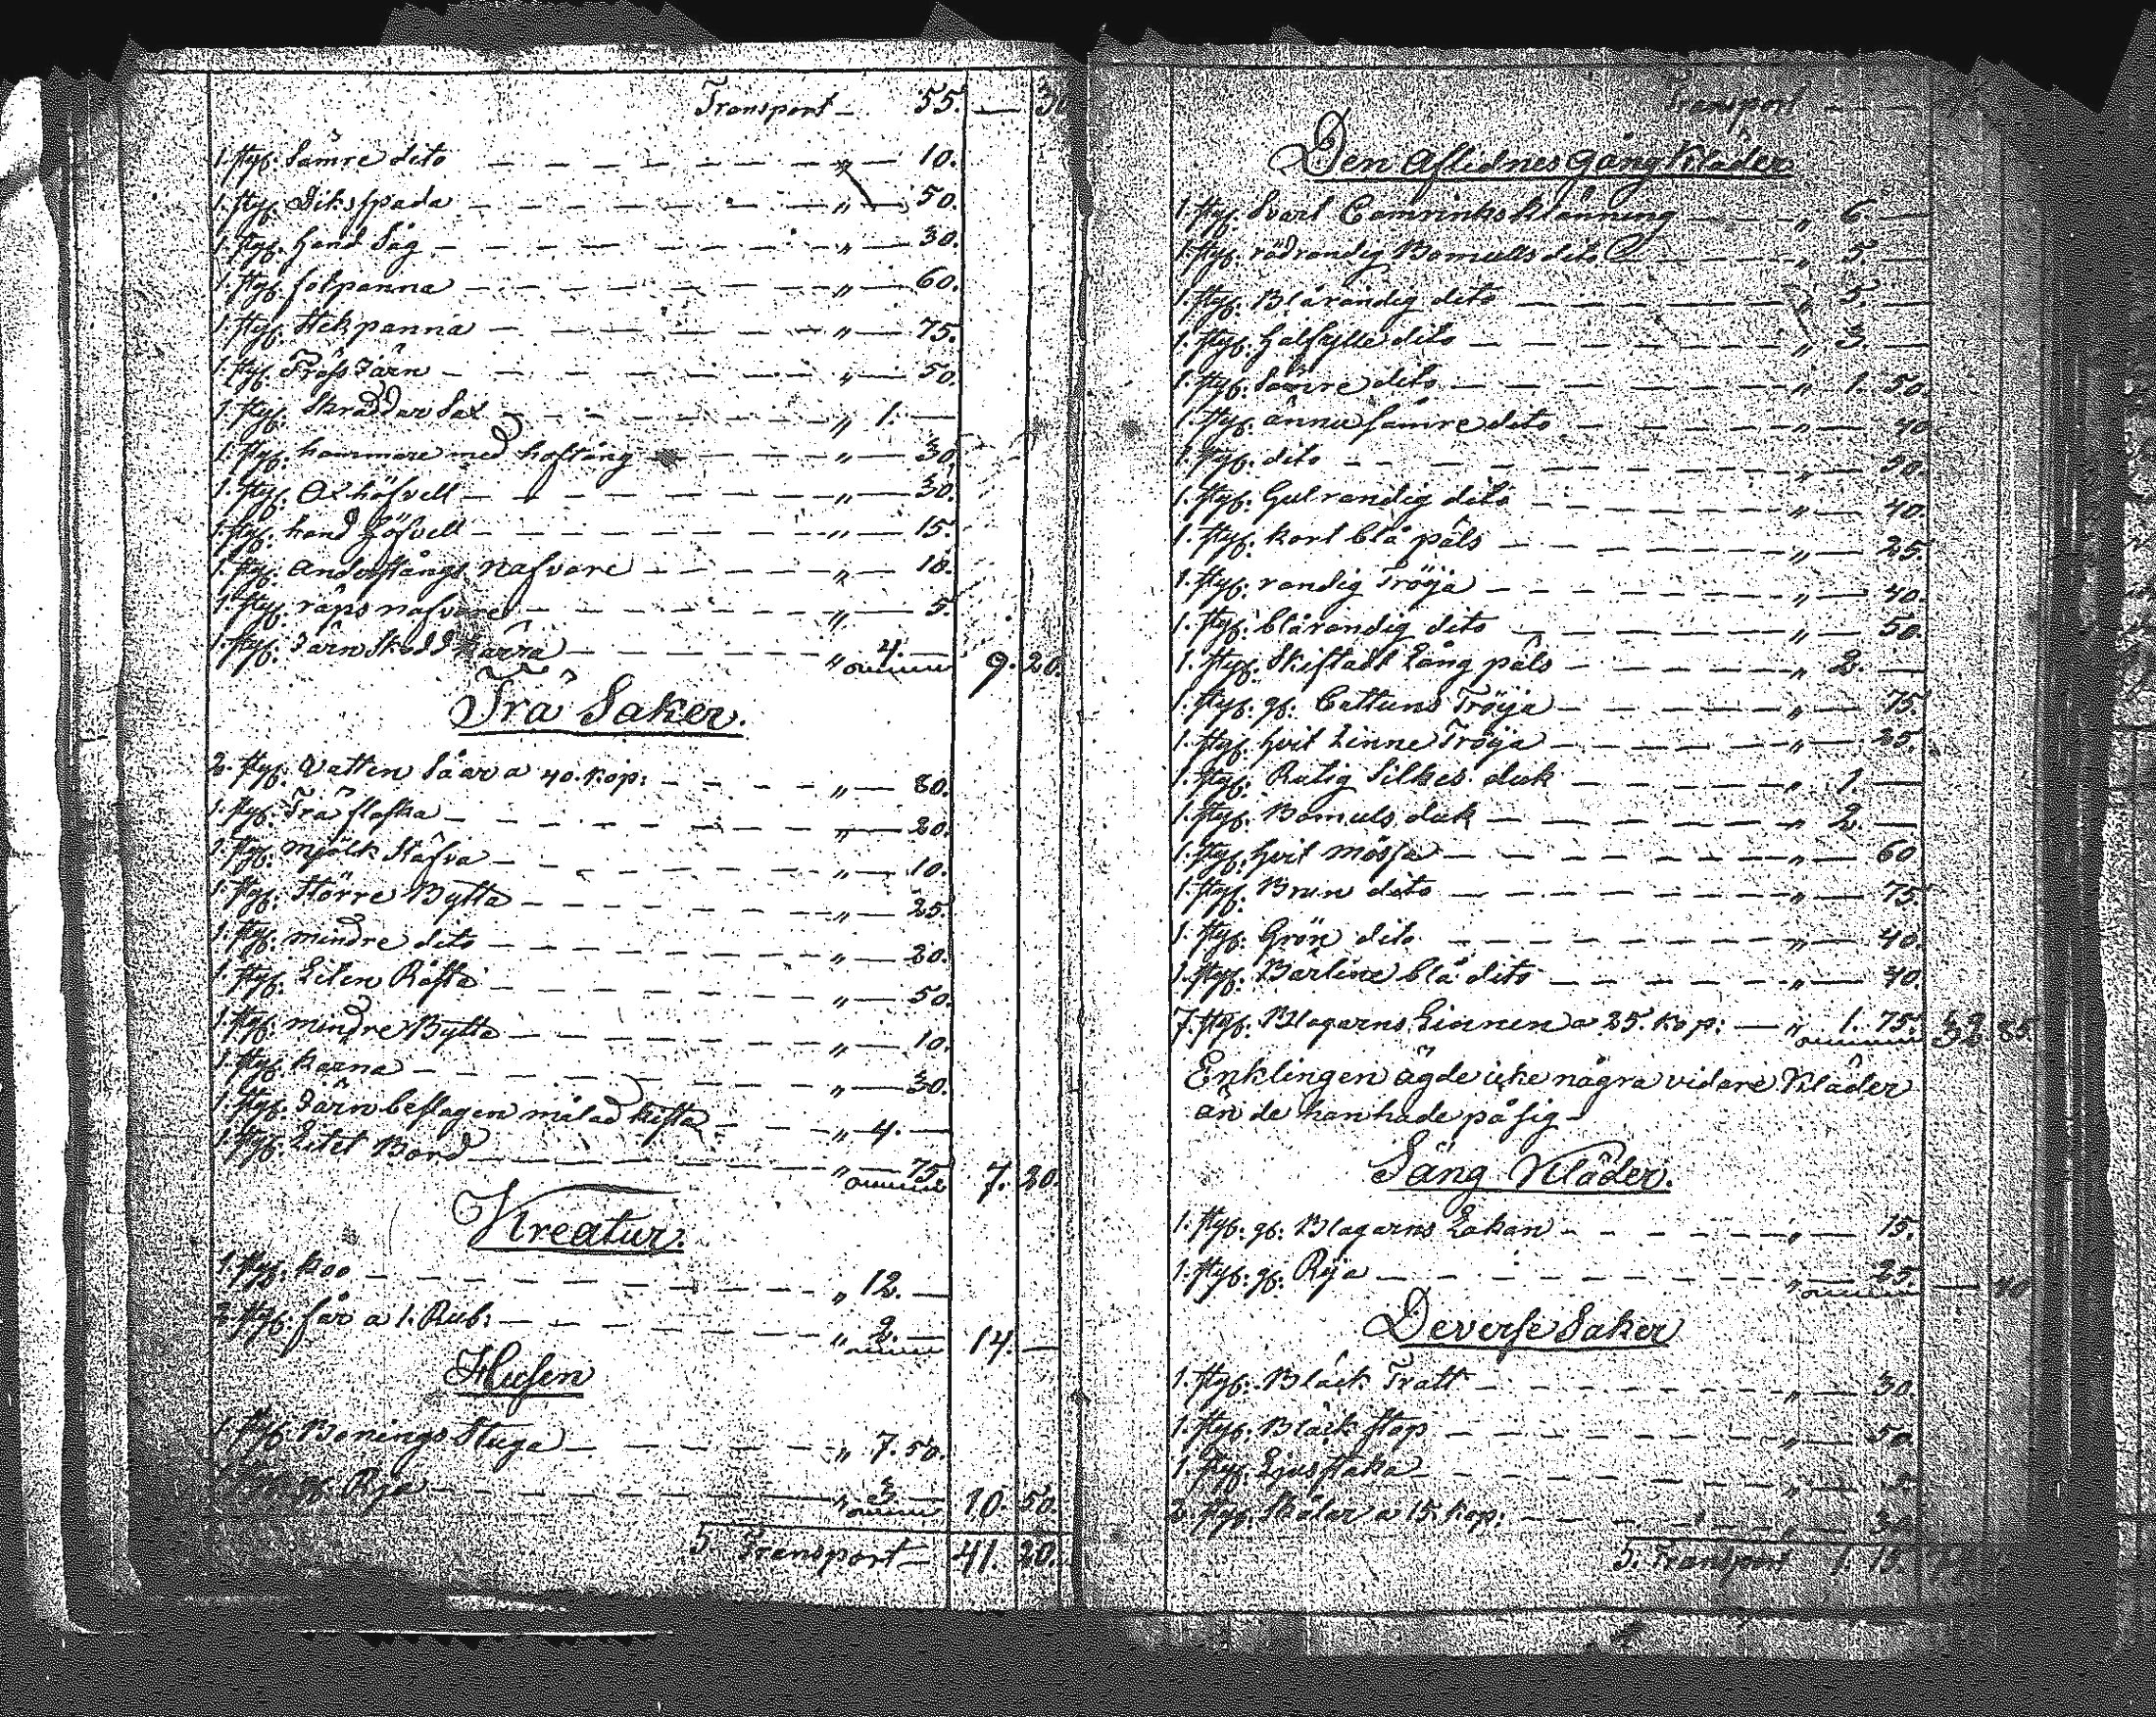 Transport — 55. — 30
1. styf. Sämre dito — — — " — 10.
1. styf. Dikspada — — — " — 50.
1. styf. hand Såg — — — " — 30.
1. styf. fotpanna — — — " — 60.
1. styf. Stekpanna — — — " — 75.
1. styf. Järn — — — " — 50.
1. styf. Skräddar Sax — — — " 1. —
1. styf. hammare med hoftång — — — " — 30.
1. styf. Oxhöfvell — — — " — 30.
1. styf. hand höfvell — — — " — 15.
1. styf. nafvare — — — " — 10.
1. styf. råps nafvare — — — " — 5.
1. styf. Järn Skodd Kärra — — — " 4. — 9. 20.
Trä Saker.
2. styf. Vatten Såar a 40. kop: — — — " — 80.
1. styf. Trä flaska — — — " — 20.
1. styf. mjölk Stäfva — — — " — 10.
1. styf. Större Bytta — — — " — 25.
1. styf. mindre dito — — — " — 20.
1. styf. Liten — — — " — 50.
1. styf. mindre Bytta — — — " — 10.
1. styf. karna — — — " — 30.
1. styf. Järnbeslagen målad kista — — — " 4. —
1. styf. Litet Bord — — — " — 75. 7. 20.
Kreatur.
1. styf. Koo — — — " 12. —
2. styf. får a 1. Rub: — — — " 2. — 14. —
Husen
1. styf. Bonings Stuga — — — " 7. 50.
1. styf. gf. Rija — — — " 3. — 10. 50.
S Transport — 41. 20.
Transport — — —
Den aflidnes Gång Kläder
1. styf. Svart Camrinks klänning — — " 6. —
1. styf. rödrandig Bomulls dito — — " 5. —
1. styf. Blårandig dito — — " 5. —
1. styf. halfylle dito — — — " 3. —
1. styf. Sämre dito — — — " 1. 50.
1. styf. ännu sämre dito — — — " — 40
1. styf. dito — — — " — 50.
1. styf. Gulrandig dito — — — " — 40.
1. styf. kort blå päls — — — " — 25.
1. styf. randig Tröija — — — " — 40.
1. styf. blårandig dito — — — " — 50.
1. styf. Skiftadt Lång päls — — — " 2. —
1. styf. gf. Cattuns Tröija — — — " — 75.
1. styf. hvit Linne Tröija — — — " — 25.
1. styf. Rutig Silkes duk — — — " 1. —
1. styf. Bomuls duk — — — " 2. —
1. styf. hvit mössa — — — " — 60
1. styf. Brun dito — — — " — 75.
1. styf. Grön dito — — — " — 40.
1. styf. Bärline blå dito — — — " — 40.
7. styf. Blagarns Linnen a 25. kop: — " 1. 75. 32 85
Enklingen ägde icke några vidare Kläder
än de han hade på sig —
Säng Kläder.
1. styf. gf. Blagarns Lakan — — — " — 15.
1. styf. gf. Rija — — — " — 25. — 40
Deverse Saker
1. styf. Bläck Tratt — — — " — 30
1. styf. Bläck stop — — — " — 50.
1. styf. Ljusstaka — — — " —
2. styf. Skålar a 15. kop: — — — " — 30
S. Transport 1. 15.